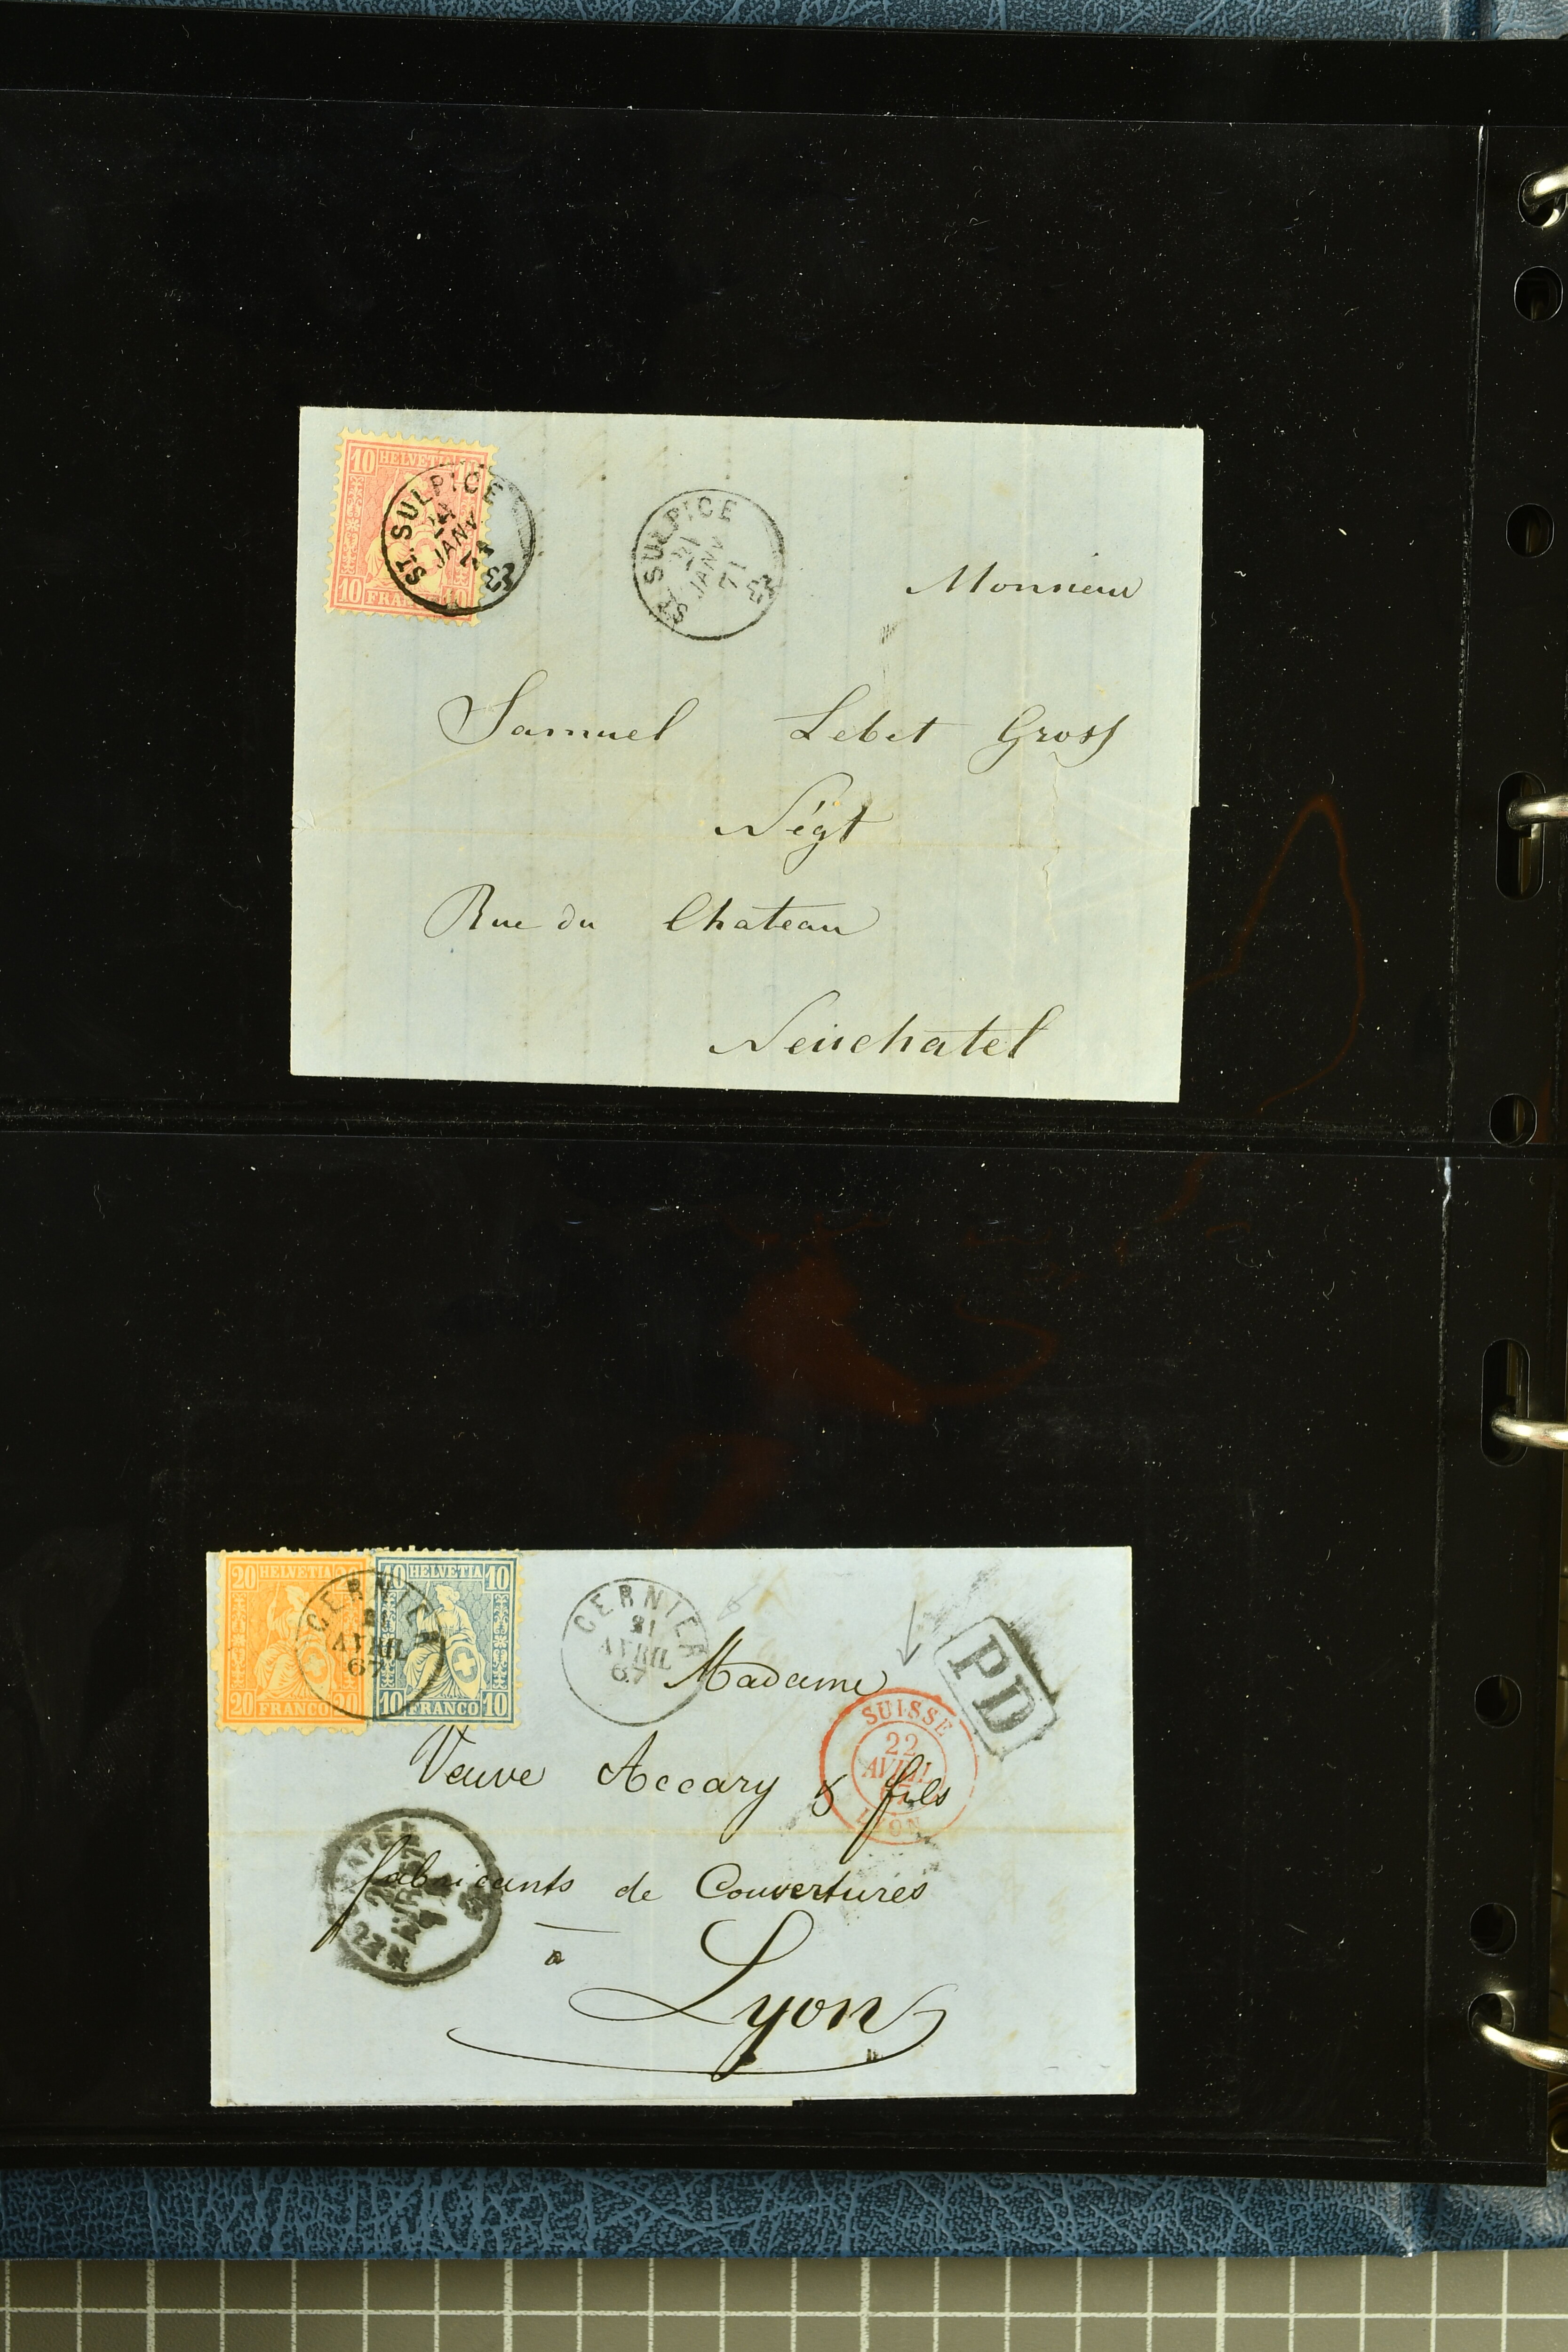 10 HELVETIA 10
10 FRANCO 10
ST. SULPICE
JANV
ST. SULPICE
21
JANV
71
Monsieur
Samuel Lebet Gross
Négt
Rue du Chateau
Neuchatel
20 HELVETIA 20
20 FRANCO 20
10 HELVETIA 10
10 FRANCO 10
CERNIER
21
AVRIL
67
CERNIER
21
AVRIL
67
PD
Madame
SUISSE
22
AVRIL
67
LYON
Veuve Accary & fils
fabricants de Couvertures
à
Lyon